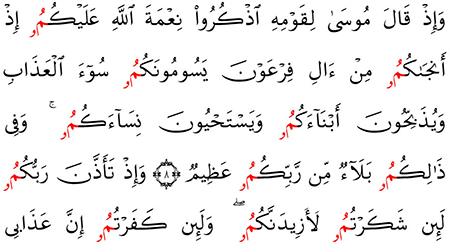 وَإِذْ قَالَ مُوسَىٰ لِقَوْمِهِ ٱذْكُرُواْ نِعْمَةَ ٱللَّهِ عَلَيْكُمُۥ إِذْ
أَنجَىٰكُمُۥ مِنْ ءَالِ فِرْعَوْنَ يَسُومُونَكُمُۥ سُوٓءَ ٱلْعَذَابِ
وَيُذَبِّحُونَ أَبْنَآءَكُمُۥ وَيَسْتَحْيُونَ نِسَآءَكُمُۥ ۚ وَفِى
ذَٰلِكُمُۥ بَلَآءٌ مِّن رَّبِّكُمُۥ عَظِيمٌ ﴿٨﴾ وَإِذْ تَأَذَّنَ رَبُّكُمُۥ
لَئِن شَكَرْتُمُۥ لَأَزِيدَنَّكُمُۥ ۖ وَلَئِن كَفَرْتُمُۥ إِنَّ عَذَابِى